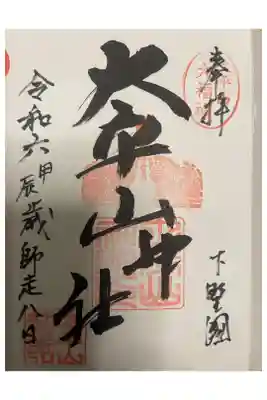 奉拝
下野國
大平山神社
令和六甲辰歳師走八日